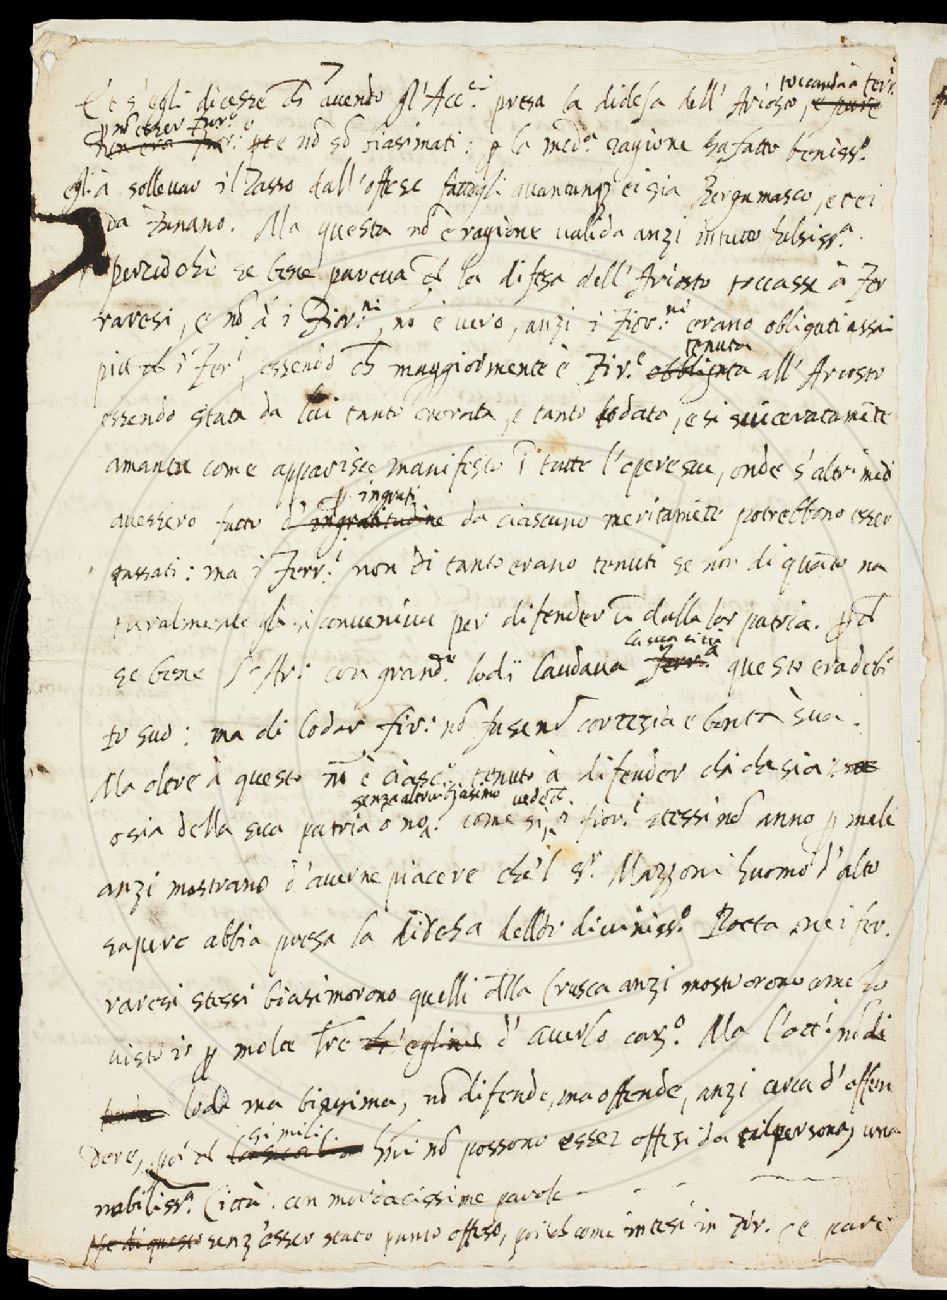 E s'egli dicesse ch' avendo gl'Acc.ci presa la difesa dell' Ariosto, toccando à Ferr. e pure
p nõ esser Fior.o non era e nõ sõ biasimati: p la med.a ragione ha fatto beniss.o
egli à sollevar il Tasso dall'offese fattegli quantunq ei sia Bergamasco, e cei
da Ma questa nõ è ragione valida anzi in tutto falsiss.a
perciochè se bene pareva ch la difesa dell'Ariosto toccasse à Fer
raresi, e nõ à i Fior.ni, nõ è vero, anzi i Fior.ni erano obligati assai
più ch i Fer.i essendo ch maggiormente è Fir.e obbligata tenuta all'Ariosto
essendo stata da lui tanto onorata, e tanto lodata, e sì sinceratamẽte
amata come apparisce manifesto ĩ tutte l'opere sue, onde s'altrimẽti
avessero fatto d'ingratitudine p ingrati da ciascuno meritamẽte potrebbono esser
tassati: ma i Ferr.i non di tanto erano tenuti se non di quãto na
turalmente gli si conveniva per difender dalla lor patria.
se bene l'Ar: con grand.e lodi laudava Ferr.a la sua città questo era debi
to suo: ma di lodar Fir: nõ fu se nõ cortesia e bontà sua.
Ma oltre à questo nõ è ciasc.o tenuto à difender chi che sia:
o sia della sua patria o no: senza altrui biasimo come si vede ch i Fior.i stessi nõ anno p male
anzi mostrano d'averne piacere che'l S.r Mazzoni huomo d'alto
sapere abbia presa la difesa dell' diviniss.o Poeta, ne i fer.
raresi stessi biasimorono quelli dlla Crusca anzi mostrorono come ho
visto ĩ p molte lre ch'eglino d'averlo car.o Ma l'att.i nõ di
fende loda ma biasima, nõ difende, ma offende, anzi cerca d'offen
dere, poi ch simili hũi nõ possono esser offesi da tal persona, una
nobiliss.a Città. con mordacissime parole
Ne di questo senz'esser stato punto offeso, poi ch come intesi in Fir. e